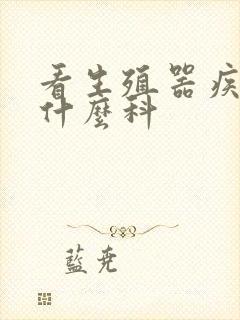 看生殖器疾
什麼科
藍堯